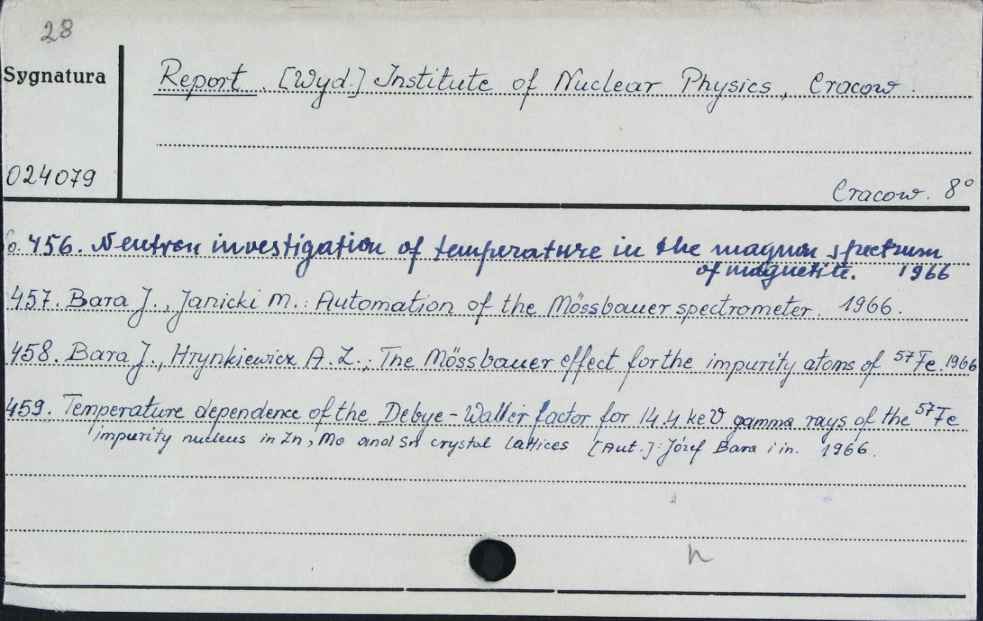 28
Sygnatura
Report. [Wyd.] Institute of Nuclear Physics, Cracow.
024079
Cracow. 8°
456. Neutron investigation of temperature in the magnon spectrum
of magnetite. 1966
457. Bara J., Janicki M.: Automation of the Mössbauer spectrometer. 1966.
458. Bara J., Hrynkiewicz A. Z.: The Mössbauer effect for the impurity atoms of ⁵⁷Fe. 1966
459. Temperature dependence of the Debye-Waller factor for 14.4 keV gamma rays of the ⁵⁷Fe
impurity nucleus in Zn, Mo and Sn crystal lattices [Aut.]: Józef Bara i in. 1966.
n